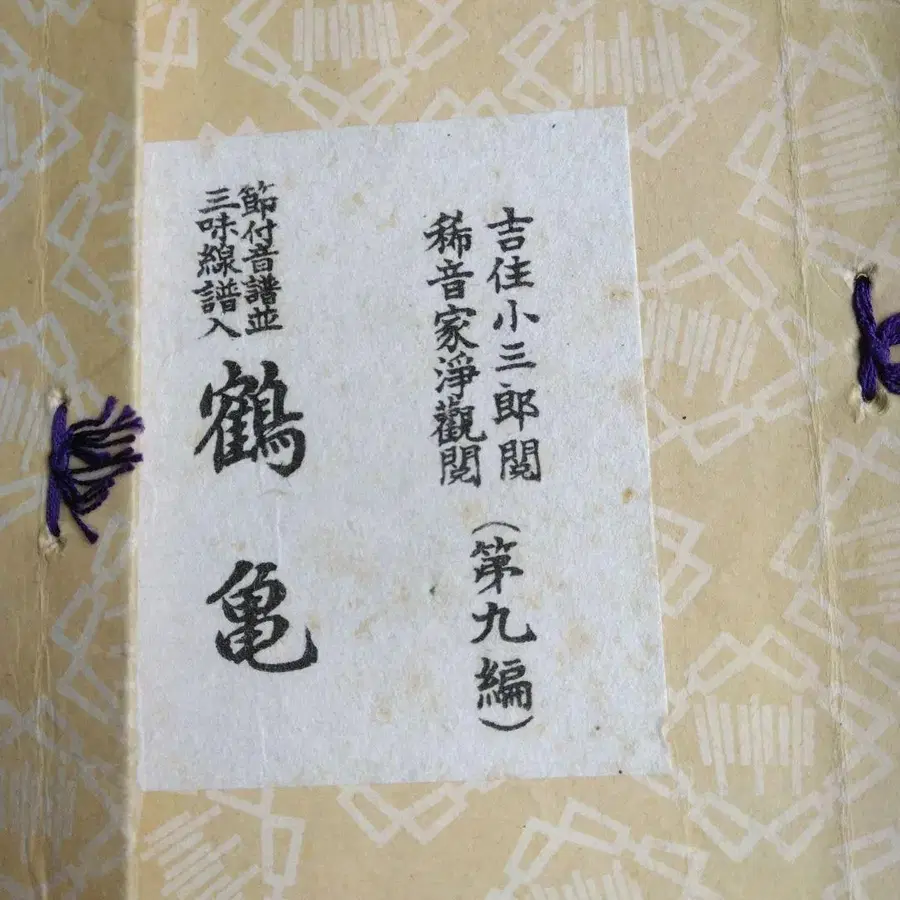 吉住小三郎閲
稀音家淨觀閲
(第九編)
節付音譜並
三味線譜入
鶴亀